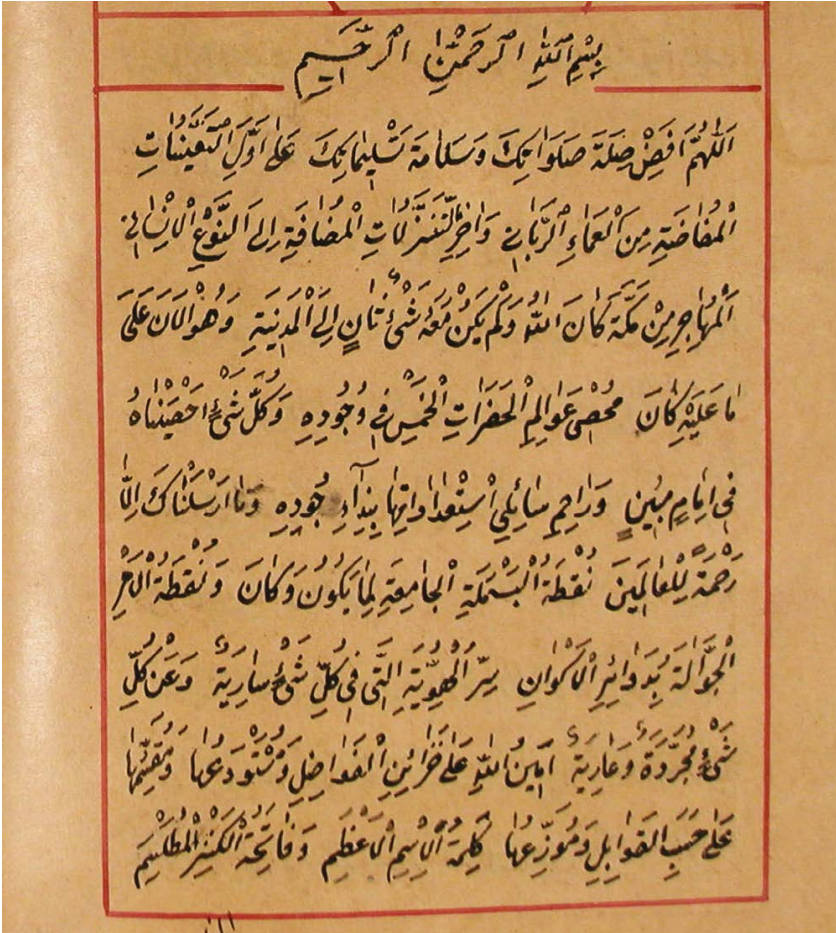 بِسْمِ اللّٰهِ الرَّحْمٰنِ الرَّحِيمِ
اَللّٰهُمَّ اَفِضْ صِلَةَ صَلَوَاتِكَ وَسَلَامَةَ تَسْلِيمَاتِكَ عَلٰى اَوَّلِ التَّعَيُّنَاتِ
الْمُفَاضَةِ مِنَ الْعَمَاءِ الرَّبَّانِى وَاٰخِرِ التَّنَزُّلَاتِ الْمُضَافَةِ اِلَى النَّوْعِ الْاِنْسَانِى
اَلْمُهَاجِرِ مِنْ مَكَّةَ كَانَ اللّٰهُ وَلَمْ يَكُنْ مَعَهُ شَىْءٌ ثَانٍ اِلَى الْمَدِينَةِ وَهُوَ الْاٰنَ عَلٰى
مَا عَلَيْهِ كَانَ مُحْصِى عَوَالِمِ الْحَضَرَاتِ الْخَمْسِ فِى وُجُودِهِ وَكُلَّ شَىْءٍ اَحْصَيْنَاهُ
فِى اِمَامٍ مُبِينٍ وَرَاحِمِ سَائِلِى اسْتِعْدَادَاتِهَا بِنِدَاۤءِ جُودِهِ وَمَا اَرْسَلْنَاكَ اِلَّا
رَحْمَةً لِلْعَالَمِينَ نُقْطَةُ الْبَسْمَلَةِ الْجَامِعَةِ لِمَا يَكُونُ وَكَانَ وَنُقْطَةُ الْاَمْرِ
الْجَوَّالَةِ بِدَوَائِرِ الْاَكْوَانِ سِرُّ الْهُوِيَّةِ الَّتِى فِى كُلِّ شَىْءٍ سَارِيَةٌ وَعَنْ كُلِّ
شَىْءٍ مُجَرَّدَةٌ وَعَارِيَةٌ اَمِينُ اللّٰهِ عَلٰى خَزَائِنِ الْفَوَاضِلِ وَمُسْتَوْدَعُهَا وَمُقَسِّمُهَا
عَلٰى حَسَبِ الْقَوَابِلِ وَمُوَزِّعُهَا كَلِمَةُ الْاِسْمِ الْاَعْظَمِ وَفَاتِحَةُ الْكَنْزِ الْمُطَلْسَمِ